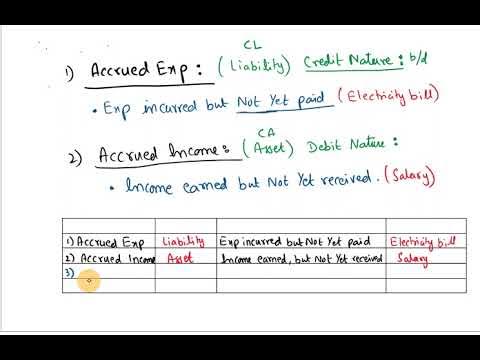 CL
1) Accrued Exp : (Liability) Credit Nature : b/d
• Exp incurred but Not Yet paid (Electricity bill)
CA
2) Accrued Income : (Asset) Debit Nature :
• Income earned but Not Yet received. (Salary)
1) Accrued Exp Liability Exp incurred but Not Yet paid Electricity bill
2) Accrued Income Asset Income earned, but Not Yet received Salary
3)